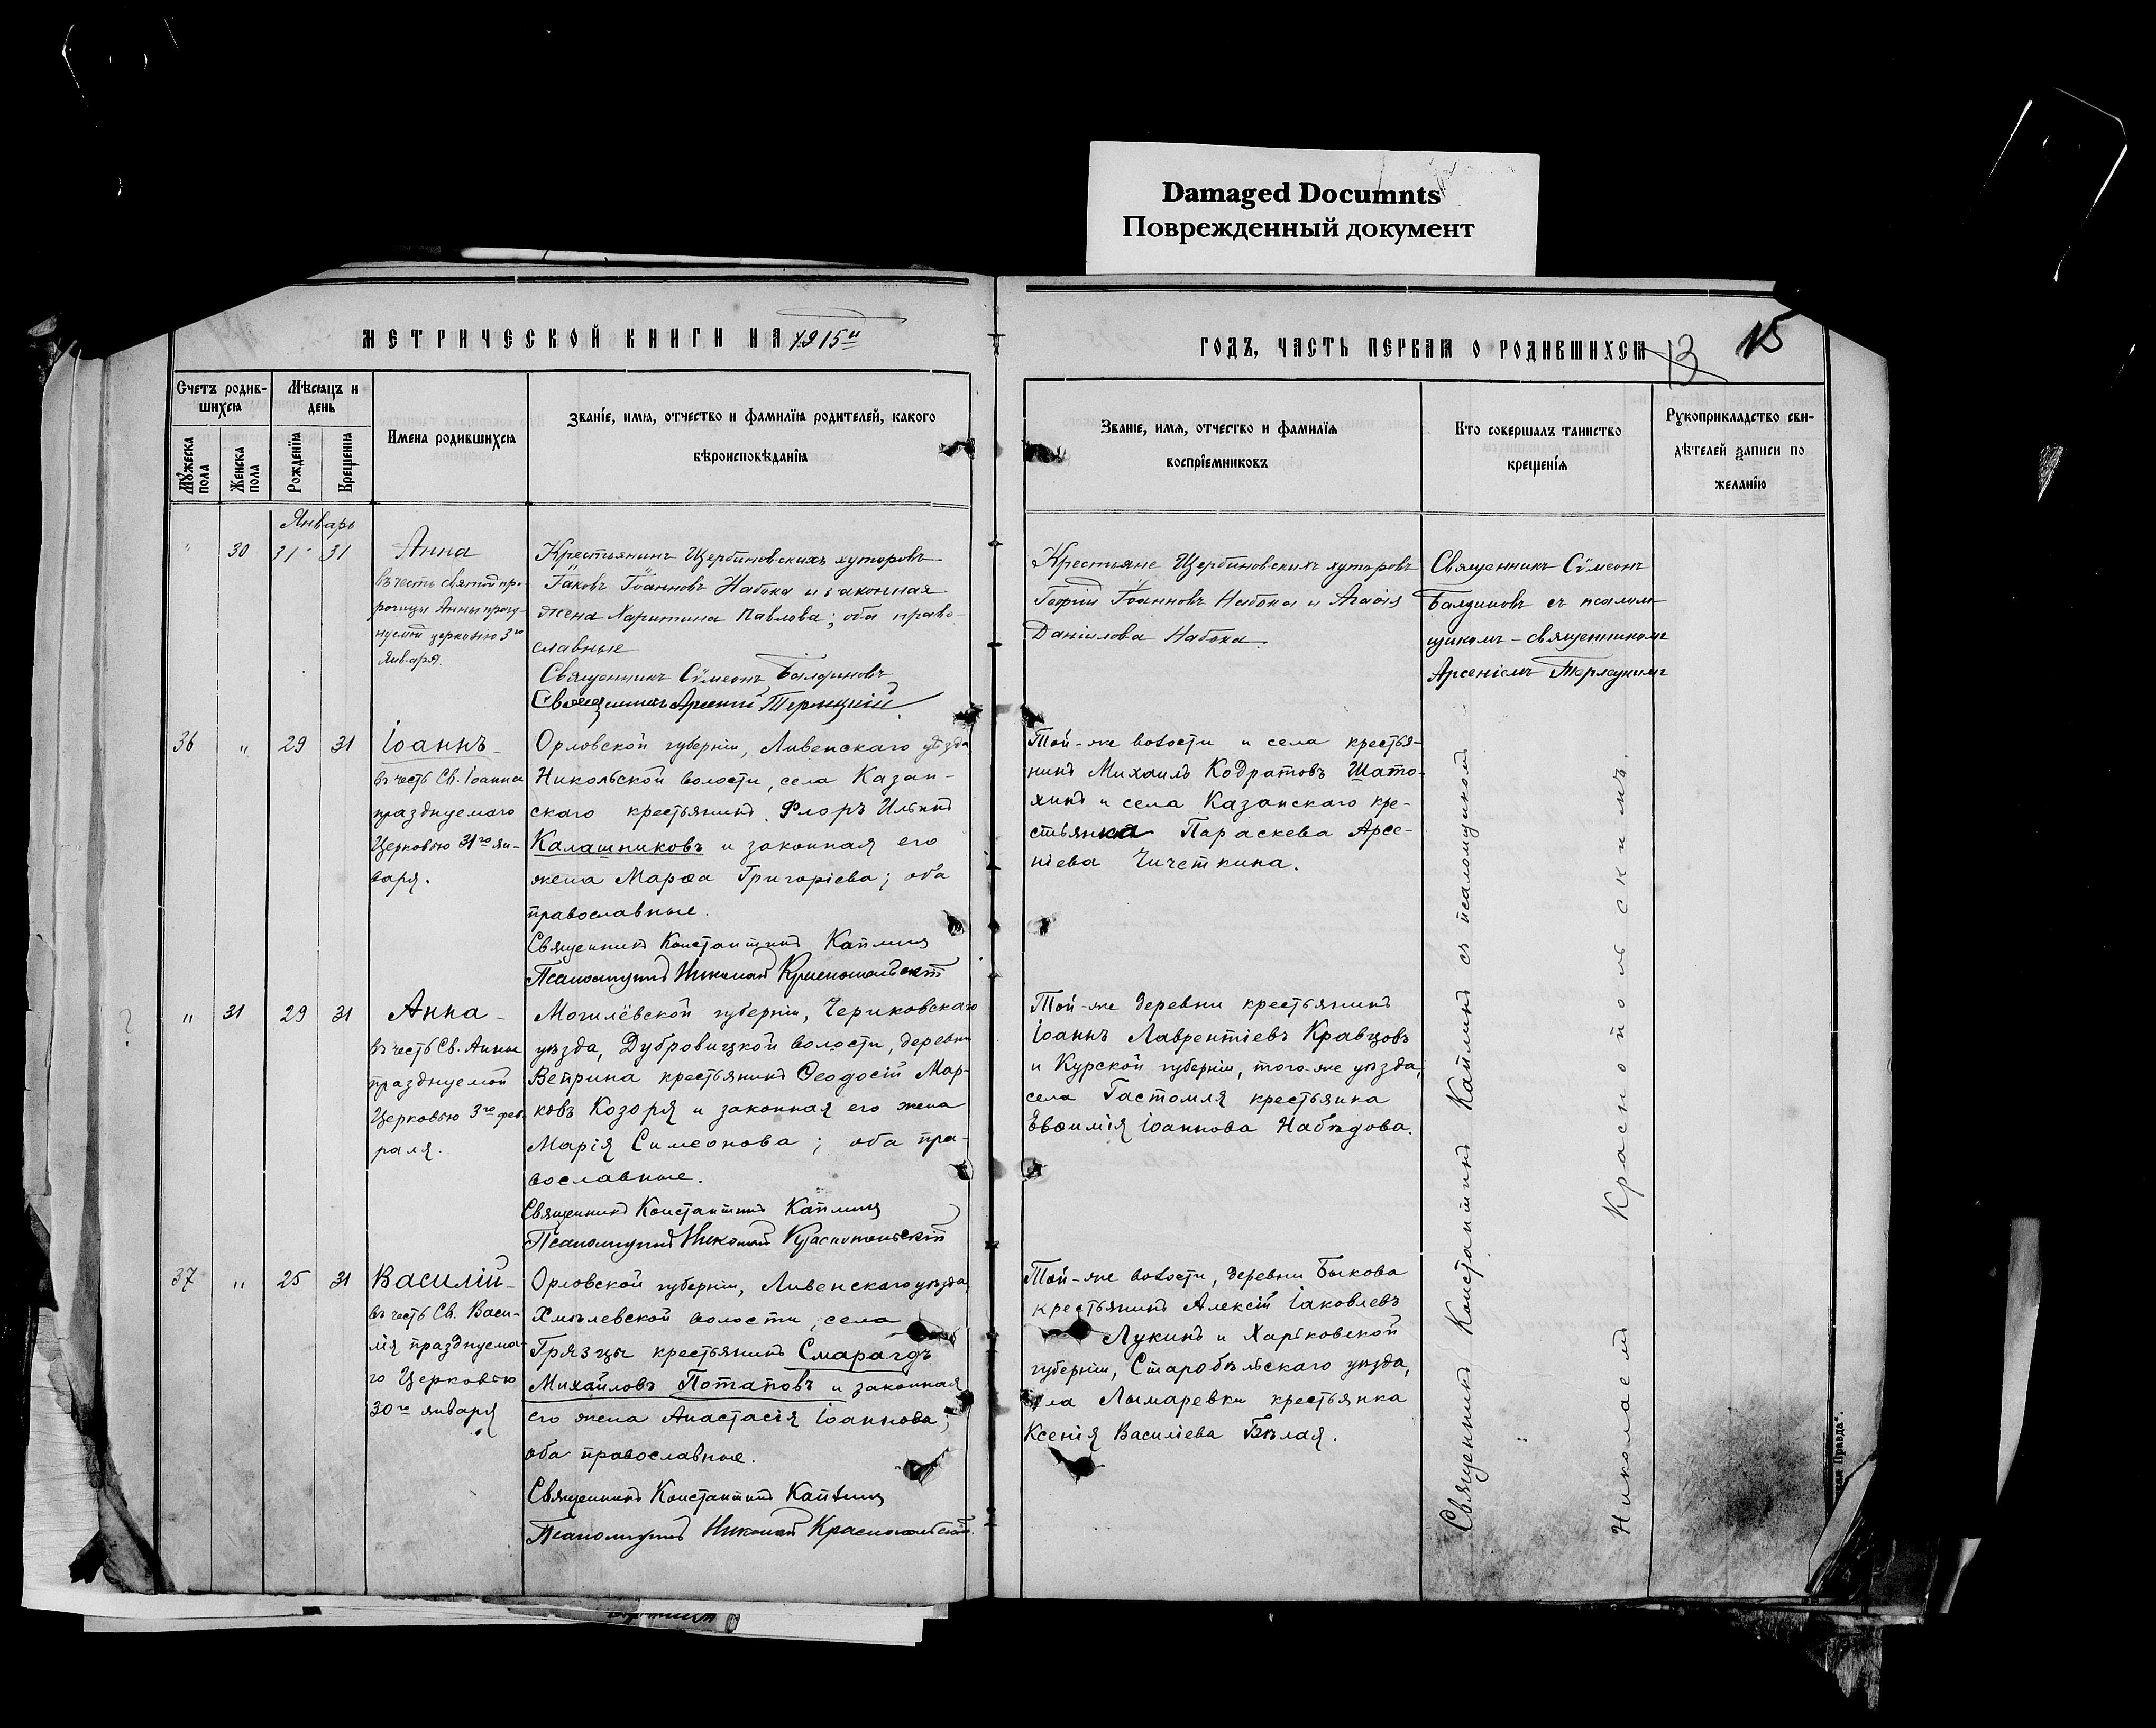 Damaged Documnts
Поврежденный документ
МЕТРИЧЕСКОЙ КНИГИ НА 1915й
ГОДЪ, ЧАСТЬ ПЕРВАЯ О РОДИВШИХСЯ
13 15
Счетъ родив-
шихся
Мѣсяцъ и
день
Мужеска пола
Женска пола
Рожденія
Крещенія
Имена родившихся
Званіе, имя, отчество и фамилія родителей, какого
вѣроисповѣданія
Званіе, имя, отчество и фамилія
воспріемниковъ
Кто совершалъ таинство
крещенія
Рукоприкладство сви-
дѣтелей записи по
желанію
Январь
" 30 31 31
Анна
въ честь святой про-
рочицы Анны празд-
нуемой церковію 3го
января.
Крестьянинъ Щербиновскихъ хуторовъ
Іаковъ Іоанновъ Набока и законная
жена Харитина Павлова; оба право-
славные
Священникъ Сѵмеонъ Балдиновъ
Священникъ Арсеній Терлецкій.
Крестьяне Щербиновскихъ хуторовъ
Георгій Іоанновъ Набока и Агаѳія
Даніилова Набока.
Священникъ Сѵмеонъ
Балдиновъ съ псалом-
щикомъ - священникомъ
Арсеніемъ Терлецкимъ
36 " 29 31
Іоаннъ
въ честь Св. Іоанна
празднуемаго
Церковью 31го ян-
варя.
Орловской губерніи, Ливенскаго уѣзда,
Никольской волости, села Казан-
скаго крестьянинъ Флоръ Ильинъ
Калашниковъ и законная его
жена Марѳа Григоріева; оба
православные.
Священникъ Константинъ Каплинъ
Псаломщикъ Николай Краснопольскій
Той-же волости и села крестья-
нинъ Михаилъ Кодратовъ Шато-
хинъ и села Казанскаго кре-
стьянка Параскева Арсе-
ніева Чичеткина.
" 31 29 31
Анна
въ честь Св. Анны
празднуемой
Церковью 3го фев-
раля.
Могилёвской губерніи, Чериковскаго
уѣзда, Дубровицкой волости, деревни
Веприна крестьянинъ Ѳеодосій Мар-
ковъ Козоря и законная его жена
Марія Симеонова; оба пра-
вославные.
Священникъ Константинъ Каплинъ
Псаломщикъ Николай Краснопольскій
Той-же деревни крестьянинъ
Іоаннъ Лаврентіевъ Кравцовъ
и Курской губерніи, того-же уѣзда,
села Гастомля крестьянка
Евѳимія Іоаннова Набѣдова.
37 " 25 31
Василій
въ честь Св. Васи-
лія празднуема-
го Церковью
30го января
Орловской губерніи, Ливенскаго уѣзда,
Хмѣлевской волости, села
Грязцы крестьянинъ Смарагдъ
Михайловъ Потаповъ и законная
его жена Анастасія Іоаннова;
оба православные.
Священникъ Константинъ Каплинъ
Псаломщикъ Николай Краснопольскій.
Той-же волости, деревни Быкова
крестьянинъ Алексій Іаковлевъ
Лукинъ и Харьковской
губерніи, Старобѣльскаго уѣзда,
села Лымаревки крестьянка
Ксенія Василіева Бѣлая.
Священникъ Константинъ Каплинъ съ псаломщикомъ
Николаемъ Краснопольскимъ.
Правда".